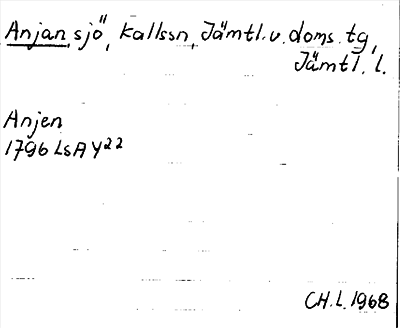 Anjan, sjö, Kallssn, Jämtl. v. doms. tg,
Jämtl. l.
Anjen
1796 LsA Y22
CH. L. 1968